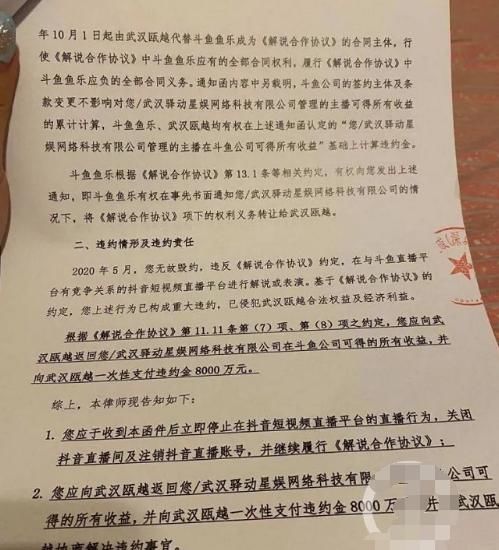 年 10 月 1 日起由武汉瓯越代替斗鱼鱼乐成为《解说合作协议》的合同主体，行
使《解说合作协议》中斗鱼鱼乐应有的全部合同权利，履行《解说合作协议》中
斗鱼鱼乐应负的全部合同义务。通知函内容中另载明，斗鱼公司的签约主体及条
款变更不影响对您/武汉驿动星娱网络科技有限公司管理的主播可得所有收益
的累计计算，斗鱼鱼乐、武汉瓯越均有权在上述通知函认定的“您/武汉驿动星
娱网络科技有限公司管理的主播在斗鱼公司可得所有收益”基础上计算违约金。
斗鱼鱼乐根据《解说合作协议》第 13.1 条等相关约定，有权向您发出上述
通知，即斗鱼鱼乐有权在事先书面通知您/武汉驿动星娱网络科技有限公司的情
况下，将《解说合作协议》项下的权利义务转让给武汉瓯越。
二、违约情形及违约责任
2020 年 5 月，您无故毁约，违反《解说合作协议》约定，在与斗鱼直播平
台有竞争关系的抖音短视频直播平台进行解说或表演。基于《解说合作协议》的
约定，您上述行为已构成重大违约，已侵犯武汉瓯越合法权益及经济利益。
根据《解说合作协议》第 11.11 条第（7）项、第（8）项之约定，您应向武
汉瓯越返回您/武汉驿动星娱网络科技有限公司在斗鱼公司可得的所有收益，并
向武汉瓯越一次性支付违约金 8000 万元。
综上，本律师现告知如下：
1. 您应于收到本函件后立即停止在抖音短视频直播平台的直播行为，关闭
抖音直播间及注销抖音直播账号，并继续履行《解说合作协议》；
2. 您应向武汉瓯越返回您/武汉驿动星娱网络科技有 公司可
得的所有收益，并向武汉瓯越一次性支付违约金 8000 万 并 武汉瓯
越协商解决违约事宜。